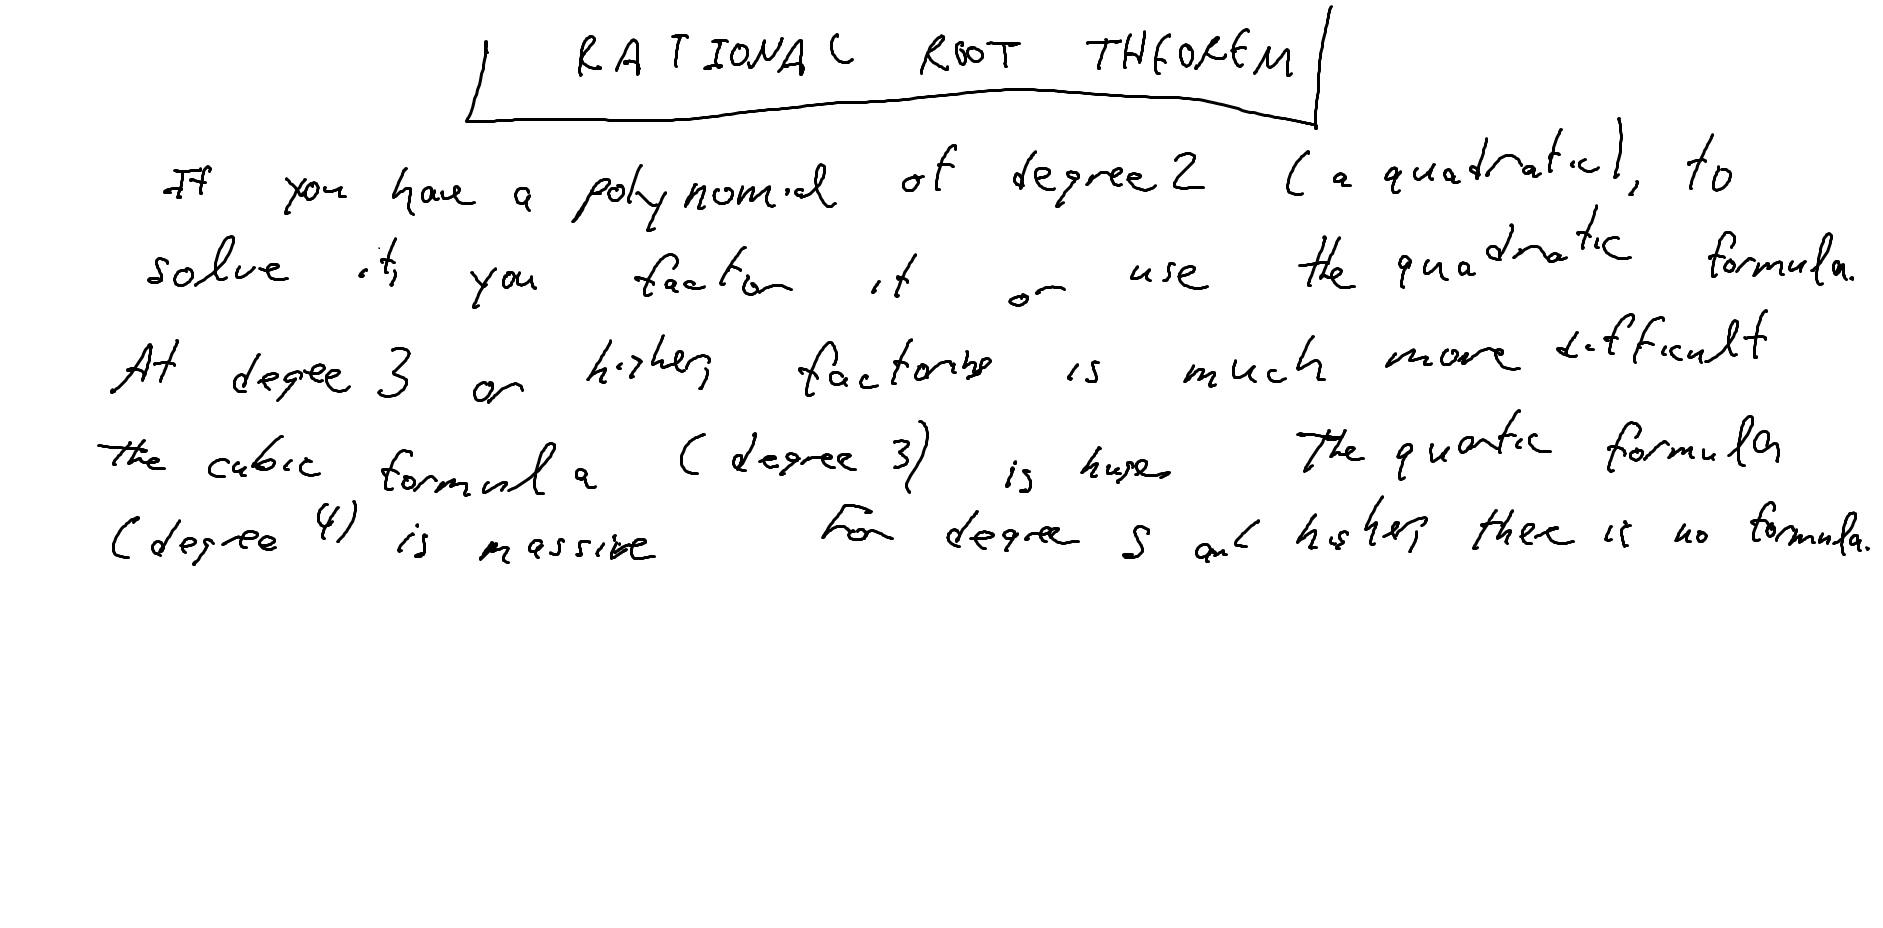 RATIONAL ROOT THEOREM
If you have a polynomial of degree 2 (a quadratic), to
solve it, you factor it or use the quadratic formula.
At degree 3 or higher, factoring is much more difficult
The cubic formula (degree 3) is huge. The quartic formula
(degree 4) is massive For degree 5 and higher, there is no formula.